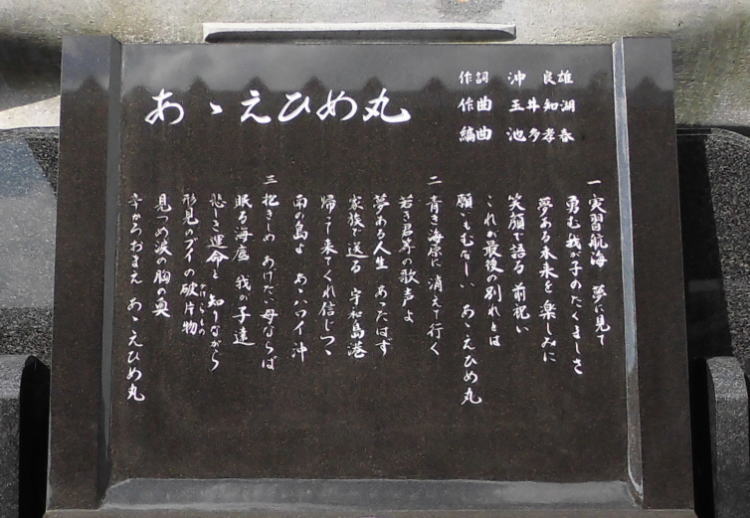 あゝえひめ丸
作詞 沖 良雄
作曲 玉井知湖
編曲 池多孝春
一 実習航海 夢に見て
勇む我が子のたくましさ
夢ある未来を 楽しみに
笑顔で語る 前祝い
これが最後の別れとは
願いもむなしい あゝえひめ丸
二 青き海原に 消えて行く
若き君等の歌声よ
夢ある人生 あったはず
家族で送る 宇和島港
帰って来てくれ信じつゝ
南の島よ あゝハワイ沖
三 抱きしめ あげたい 母ならば
眠る海底 我が子達
悲しき運命と 知りながら
形見のブイの破片物
かけらもの
見つめ波の胸の奥
辛かろおまえ あゝえひめ丸